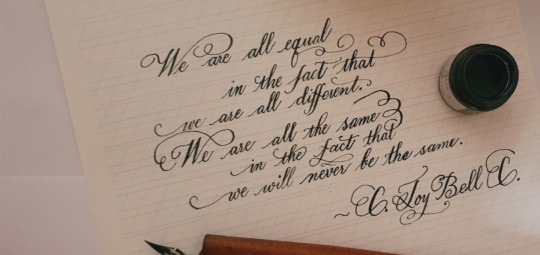 We are all equal
in the fact that
we are all different.
We are all the same
in the fact that
we will never be the same.
~C. Joy Bell C.